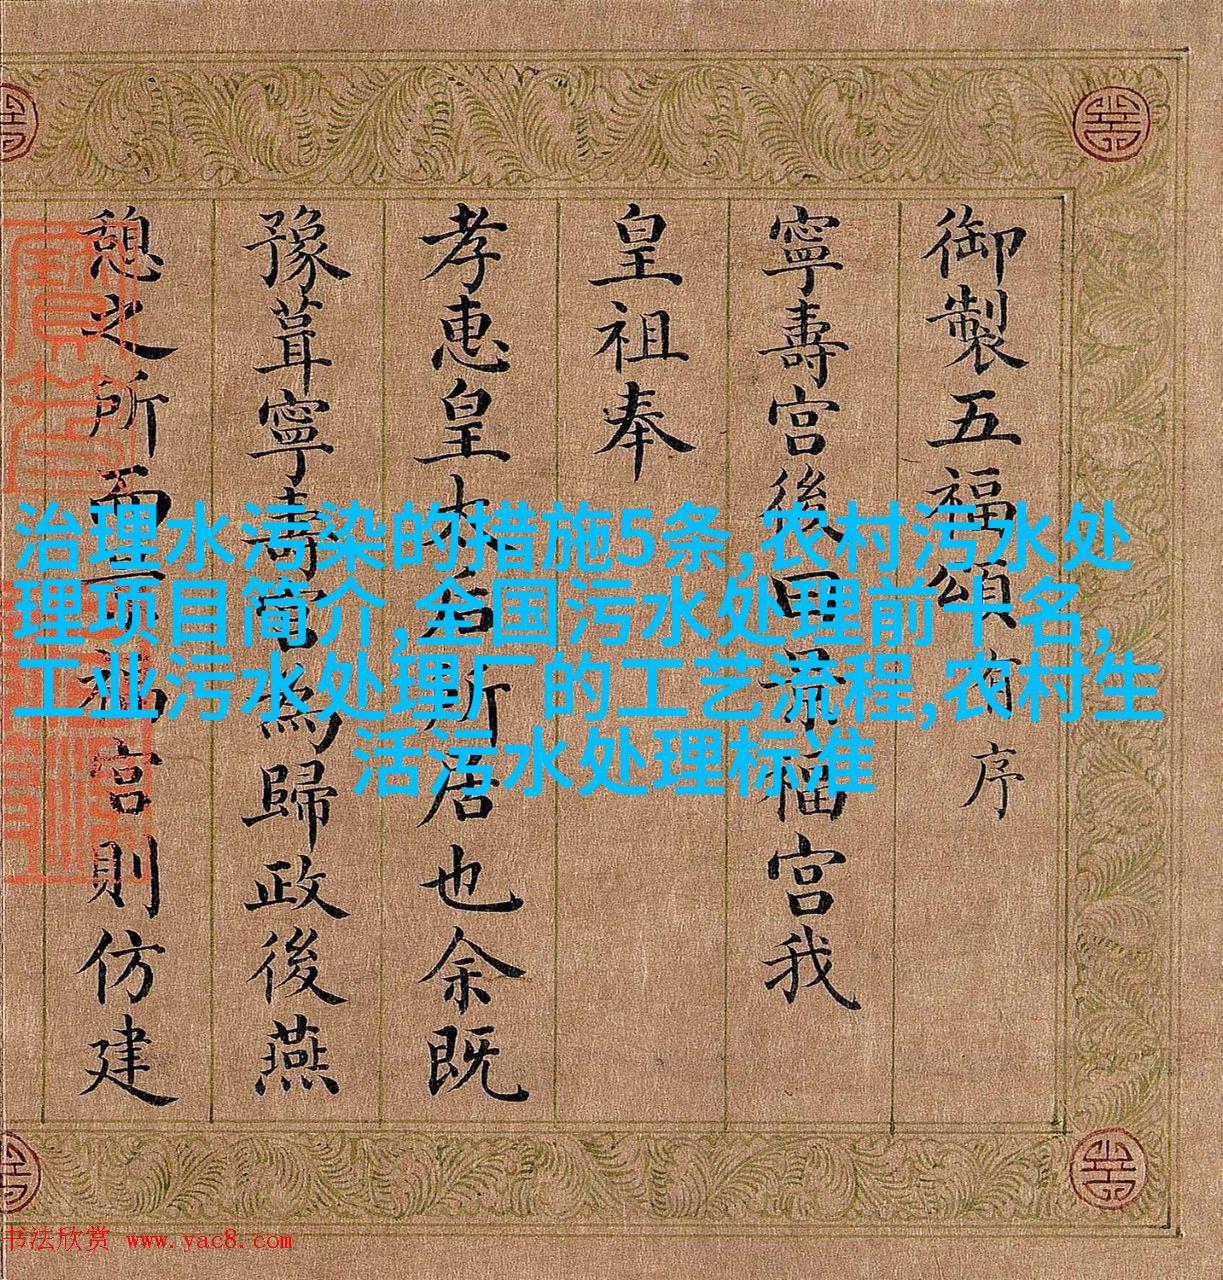 御製五福頌有序
寧壽宫後曰景福宫我
皇祖奉
孝惠皇太后所居也余既
豫葺寧壽宫為歸政後燕
憩之所而景福宫則仿建
治理水污染的措施5条,农村污水处
理项目简介,全国污水处理前十名,
工业污水处理厂的工艺流程,农村生
活污水处理标准
书法欣赏 www.yac8.com